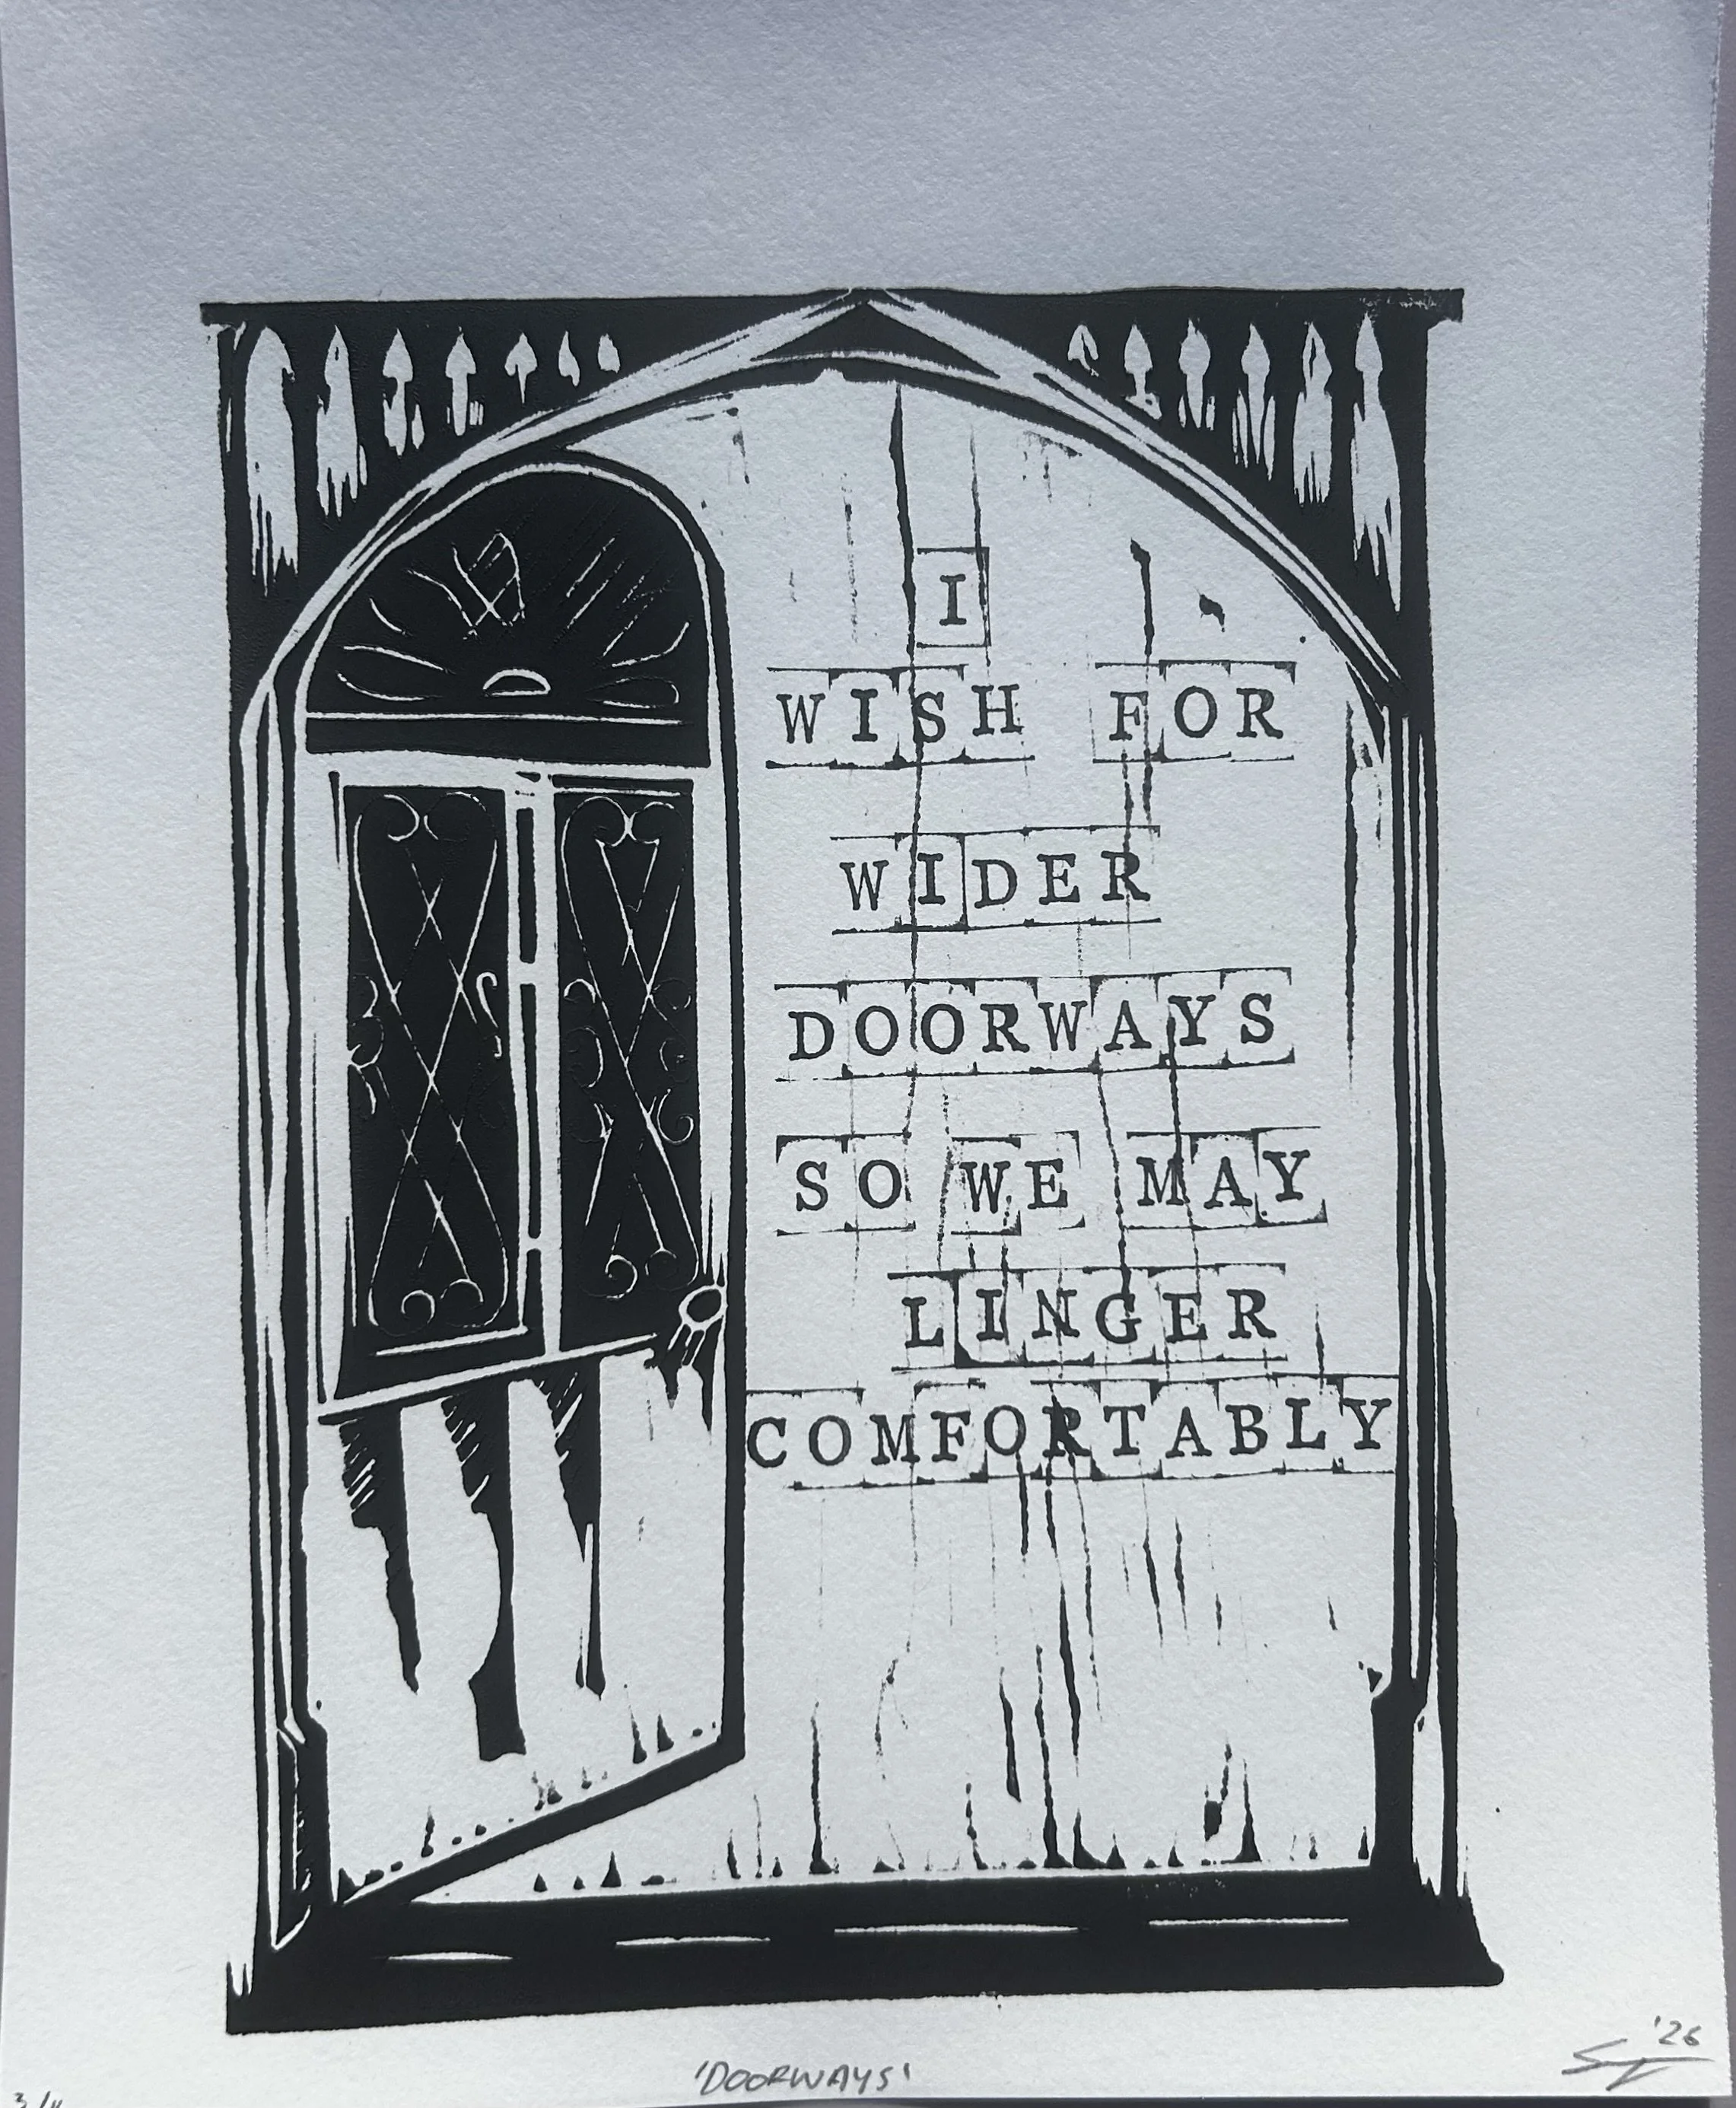 I
WISH FOR
WIDER
DOORWAYS
SO WE MAY
LINGER
COMFORTABLY
'26
'DOORWAYS'